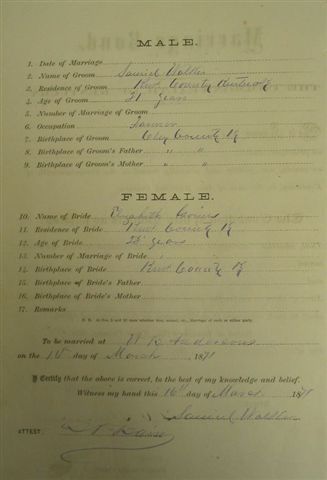 MALE.
1. Date of Marriage
2. Name of Groom Samuel Walker
3. Residence of Groom Knox County Kentucky
4. Age of Groom 21 years
5. Number of Marriage of Groom
6. Occupation Farmer
7. Birthplace of Groom Clay County Ky
8. Birthplace of Groom's Father " "
9. Birthplace of Groom's Mother " "
FEMALE.
10. Name of Bride Elizabeth
11. Residence of Bride Knox County Ky
12. Age of Bride years
13. Number of Marriage of Bride
14. Birthplace of Bride Knox County Ky
15. Birthplace of Bride's Father
16. Birthplace of Bride's Mother
17. Remarks
To be married at
on the day of March 1871
I Certify that the above is correct, to the best of my knowledge and belief.
Witness my hand this 16th day of March 1871
Samuel Walker
ATTEST: